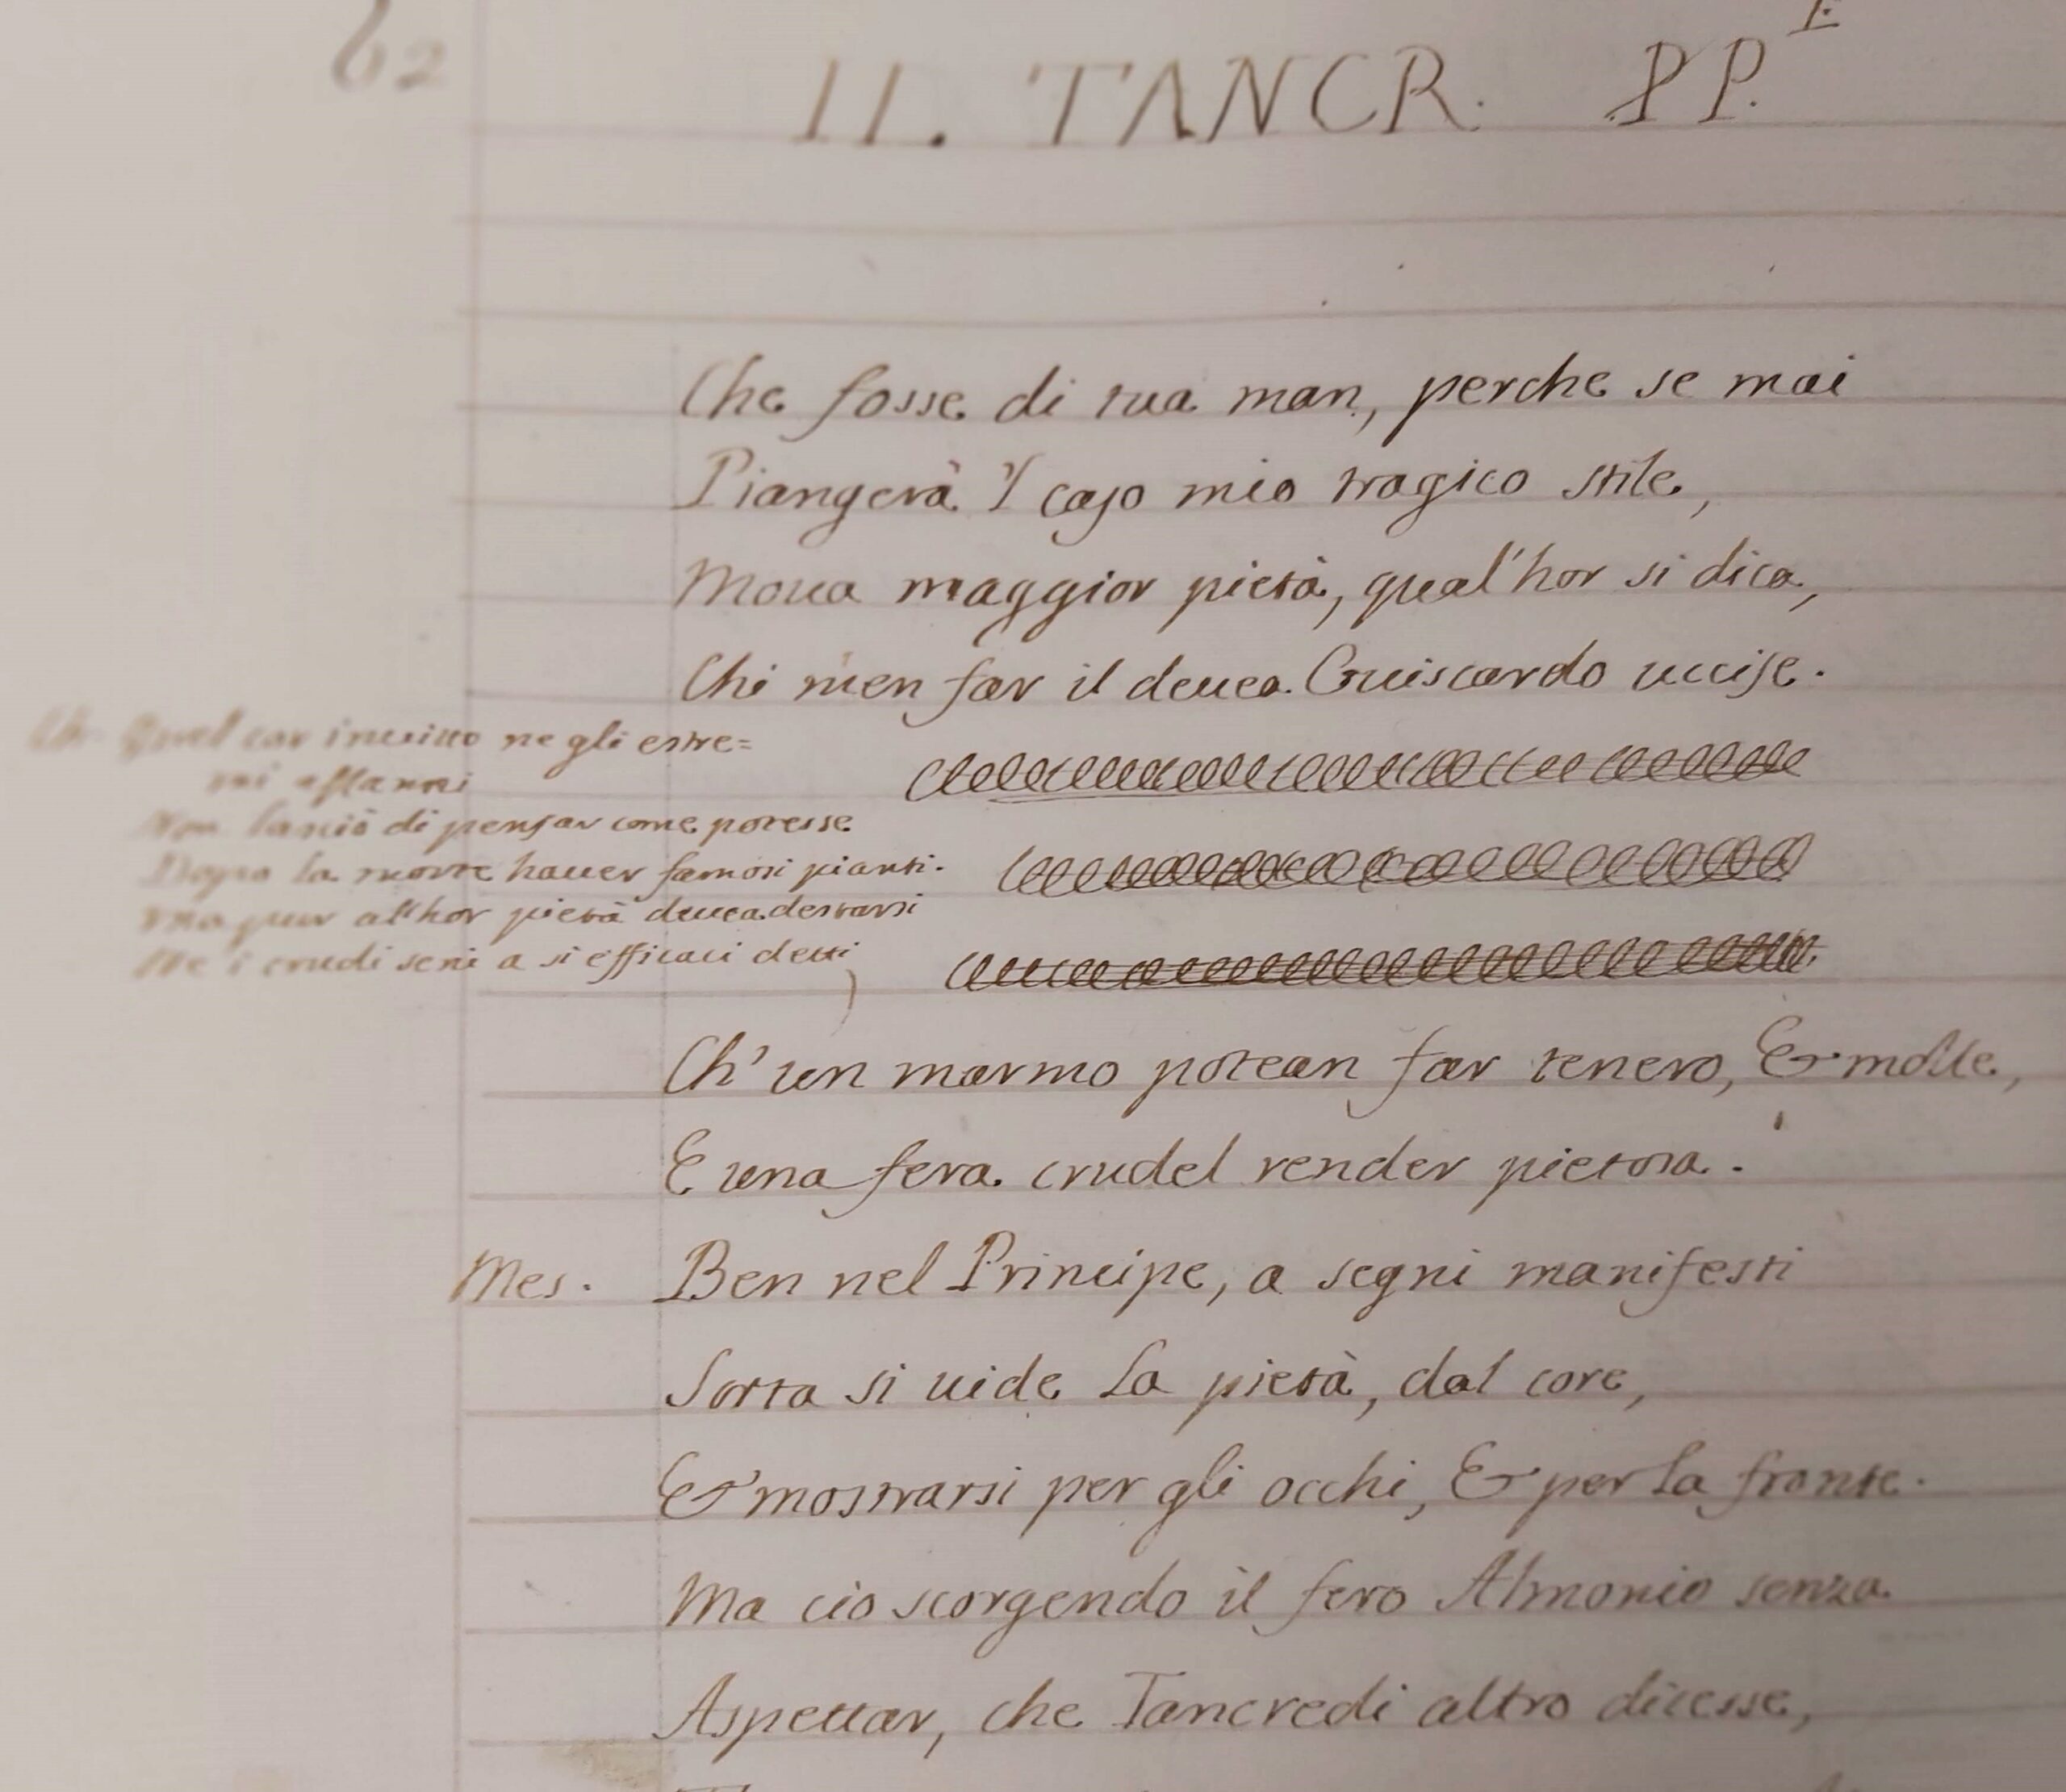 62
II. TANCR. PP. E
Che fosse di tua man, perche se mai
Piangerà 'l caso mio tragico stile,
Moua maggior pietà, qual'hor si dica,
Chi men far il deuea Guiscardo uccise.
Ch. Quel cor inuitto ne gli estre=
mi affanni
Non lasciò di pensar come potesse
Dopo la morte hauer famosi pianti.
Ma pur all'hor pietà deuea destarsi
Ne i crudi seni a si efficaci detti
Ch'un marmo potean far tenero, & molle,
E una fera crudel render pietosa.
Mes. Ben nel Principe, a segni manifesti
Sorta si uide la pietà, dal core,
Et mostrarsi per gli occhi, & per la fronte.
Ma cio scorgendo il fero Almonio senza
Aspettar, che Tancredi altro dicesse,